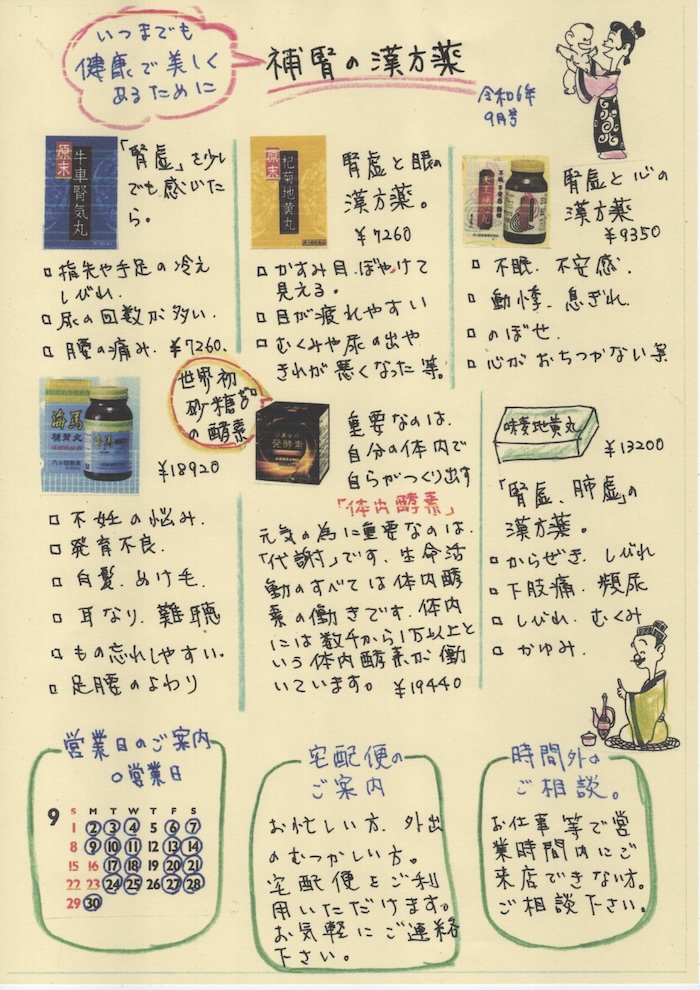 いつまでも
健康で美しく
あるために
補腎の漢方薬
令和6年
9月号
原末
牛車腎気丸
「腎虚」を少し
でも感じた
ら。
□ 指先や手足の冷え
しびれ.
□ 尿の回数が多い.
□ 腰の痛み. ¥7260.
原末
杞菊地黄丸
腎虚と眼の
漢方薬。
¥7260
□ かすみ目.ぼやけて
見える。
□ 目が疲れやすい
□ むくみや尿の出や
きれが悪くなった等。
腎虚と心の
漢方薬
¥9350
□ 不眠. 不安感.
□ 動悸. 息ぎれ.
□ のぼせ.
□ 心がおちつかない等
海馬
補腎丸
¥18920
□ 不妊の悩み.
□ 発育不良.
□ 白髪. ぬけ毛.
□ 耳なり. 難聴
□ もの忘れしやすい。
□ 足腰のよわり
世界初
砂糖ゼロ
の酵素
発酵素
重要なのは.
自分の体内で
自らがつくり出す
「体内酵素」
元気の為に重要なのは.
「代謝」です. 生命活
動のすべては体内酵
素の働きです. 体内
には数千から1万以上と
いう体内酵素が働
いています。 ¥19440
味麦地黄丸
¥13200
「腎虚、肺虚」の
漢方薬。
□ からぜき. しびれ
□ 下肢痛. 頻尿
□ しびれ. むくみ
□ かゆみ.
営業日のご案内
○営業日
9
S M T W T F S
1 2 3 4 5 6 7
8 9 10 11 12 13 14
15 16 17 18 19 20 21
22 23 24 25 26 27 28
29 30
宅配便の
ご案内
お忙しい方. 外出
のむつかしい方。
宅配便をご利
用いただけます。
お気軽にご連絡
下さい。
時間外の
ご相談。
お仕事等で営
業時間内にご
来店できない方。
ご相談下さい。